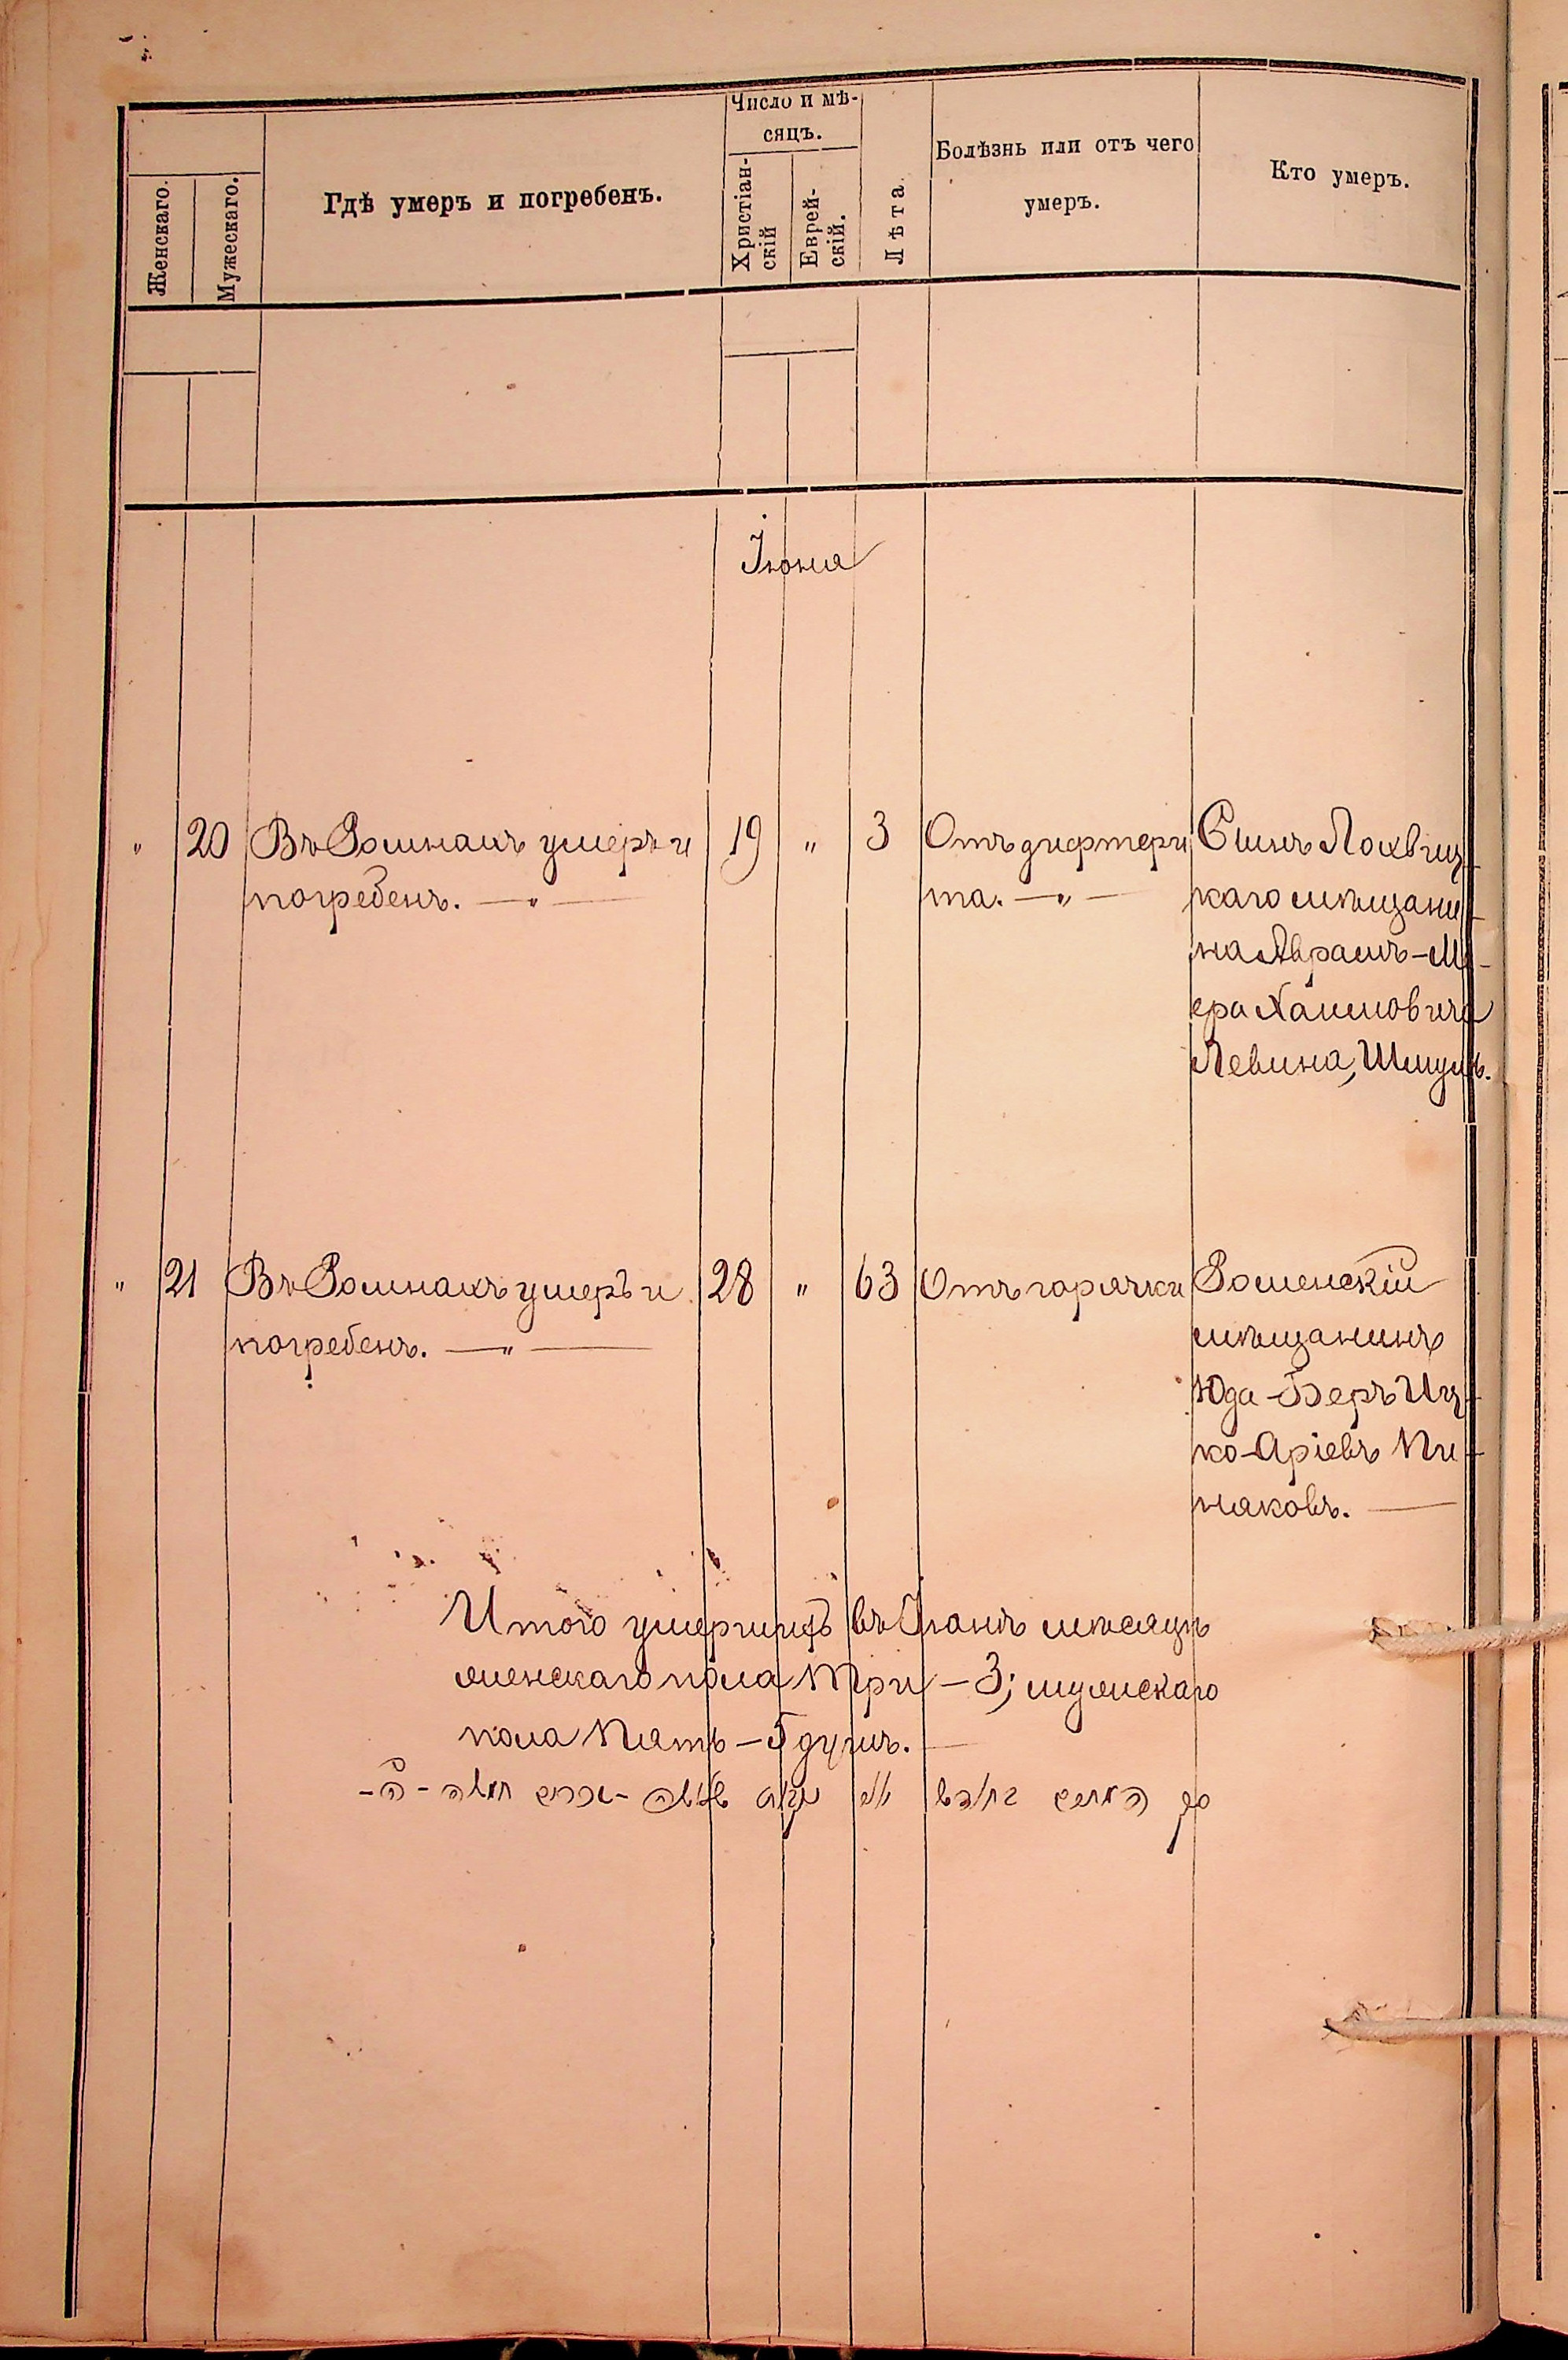 Женскаго.
Мужескаго.
Гдѣ умеръ и погребенъ.
Число и мѣ-
сяцъ.
Христіан-
скій
Еврей-
скій.
Лѣта
Болѣзнь или отъ чего
умеръ.
Кто умеръ.
Іюня
" 20 Въ Ромнахъ умеръ и 19 " 3 Отъ дифтери Сынъ Лохвиц-
погребенъ. — " — та. — " — каго мѣщани-
на Абрамъ-Ме-
ера Хаимовича
Левина, Шмуль.
" 21 Въ Ромнахъ умеръ и 28 " 63 Отъ горячки Роменскій
погребенъ. — " — мѣщанинъ
Юда-Беръ Иц-
ко-Аріевъ Пи-
няковъ. —
Итого умершихъ въ Іюнѣ мѣсяцѣ
женскаго пола три — 3; мужскаго
пола пять — 5 душъ. —